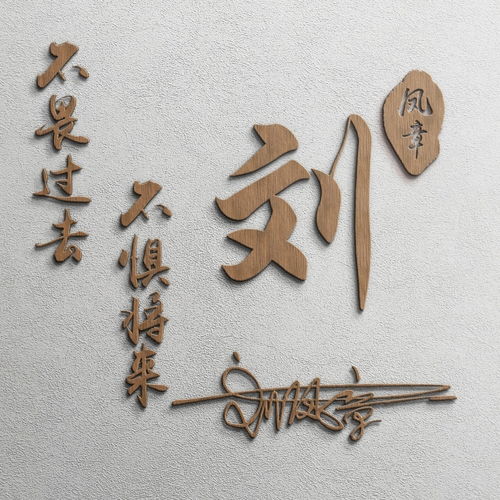 不畏过去
不惧将来
刘
凤章
刘凤章